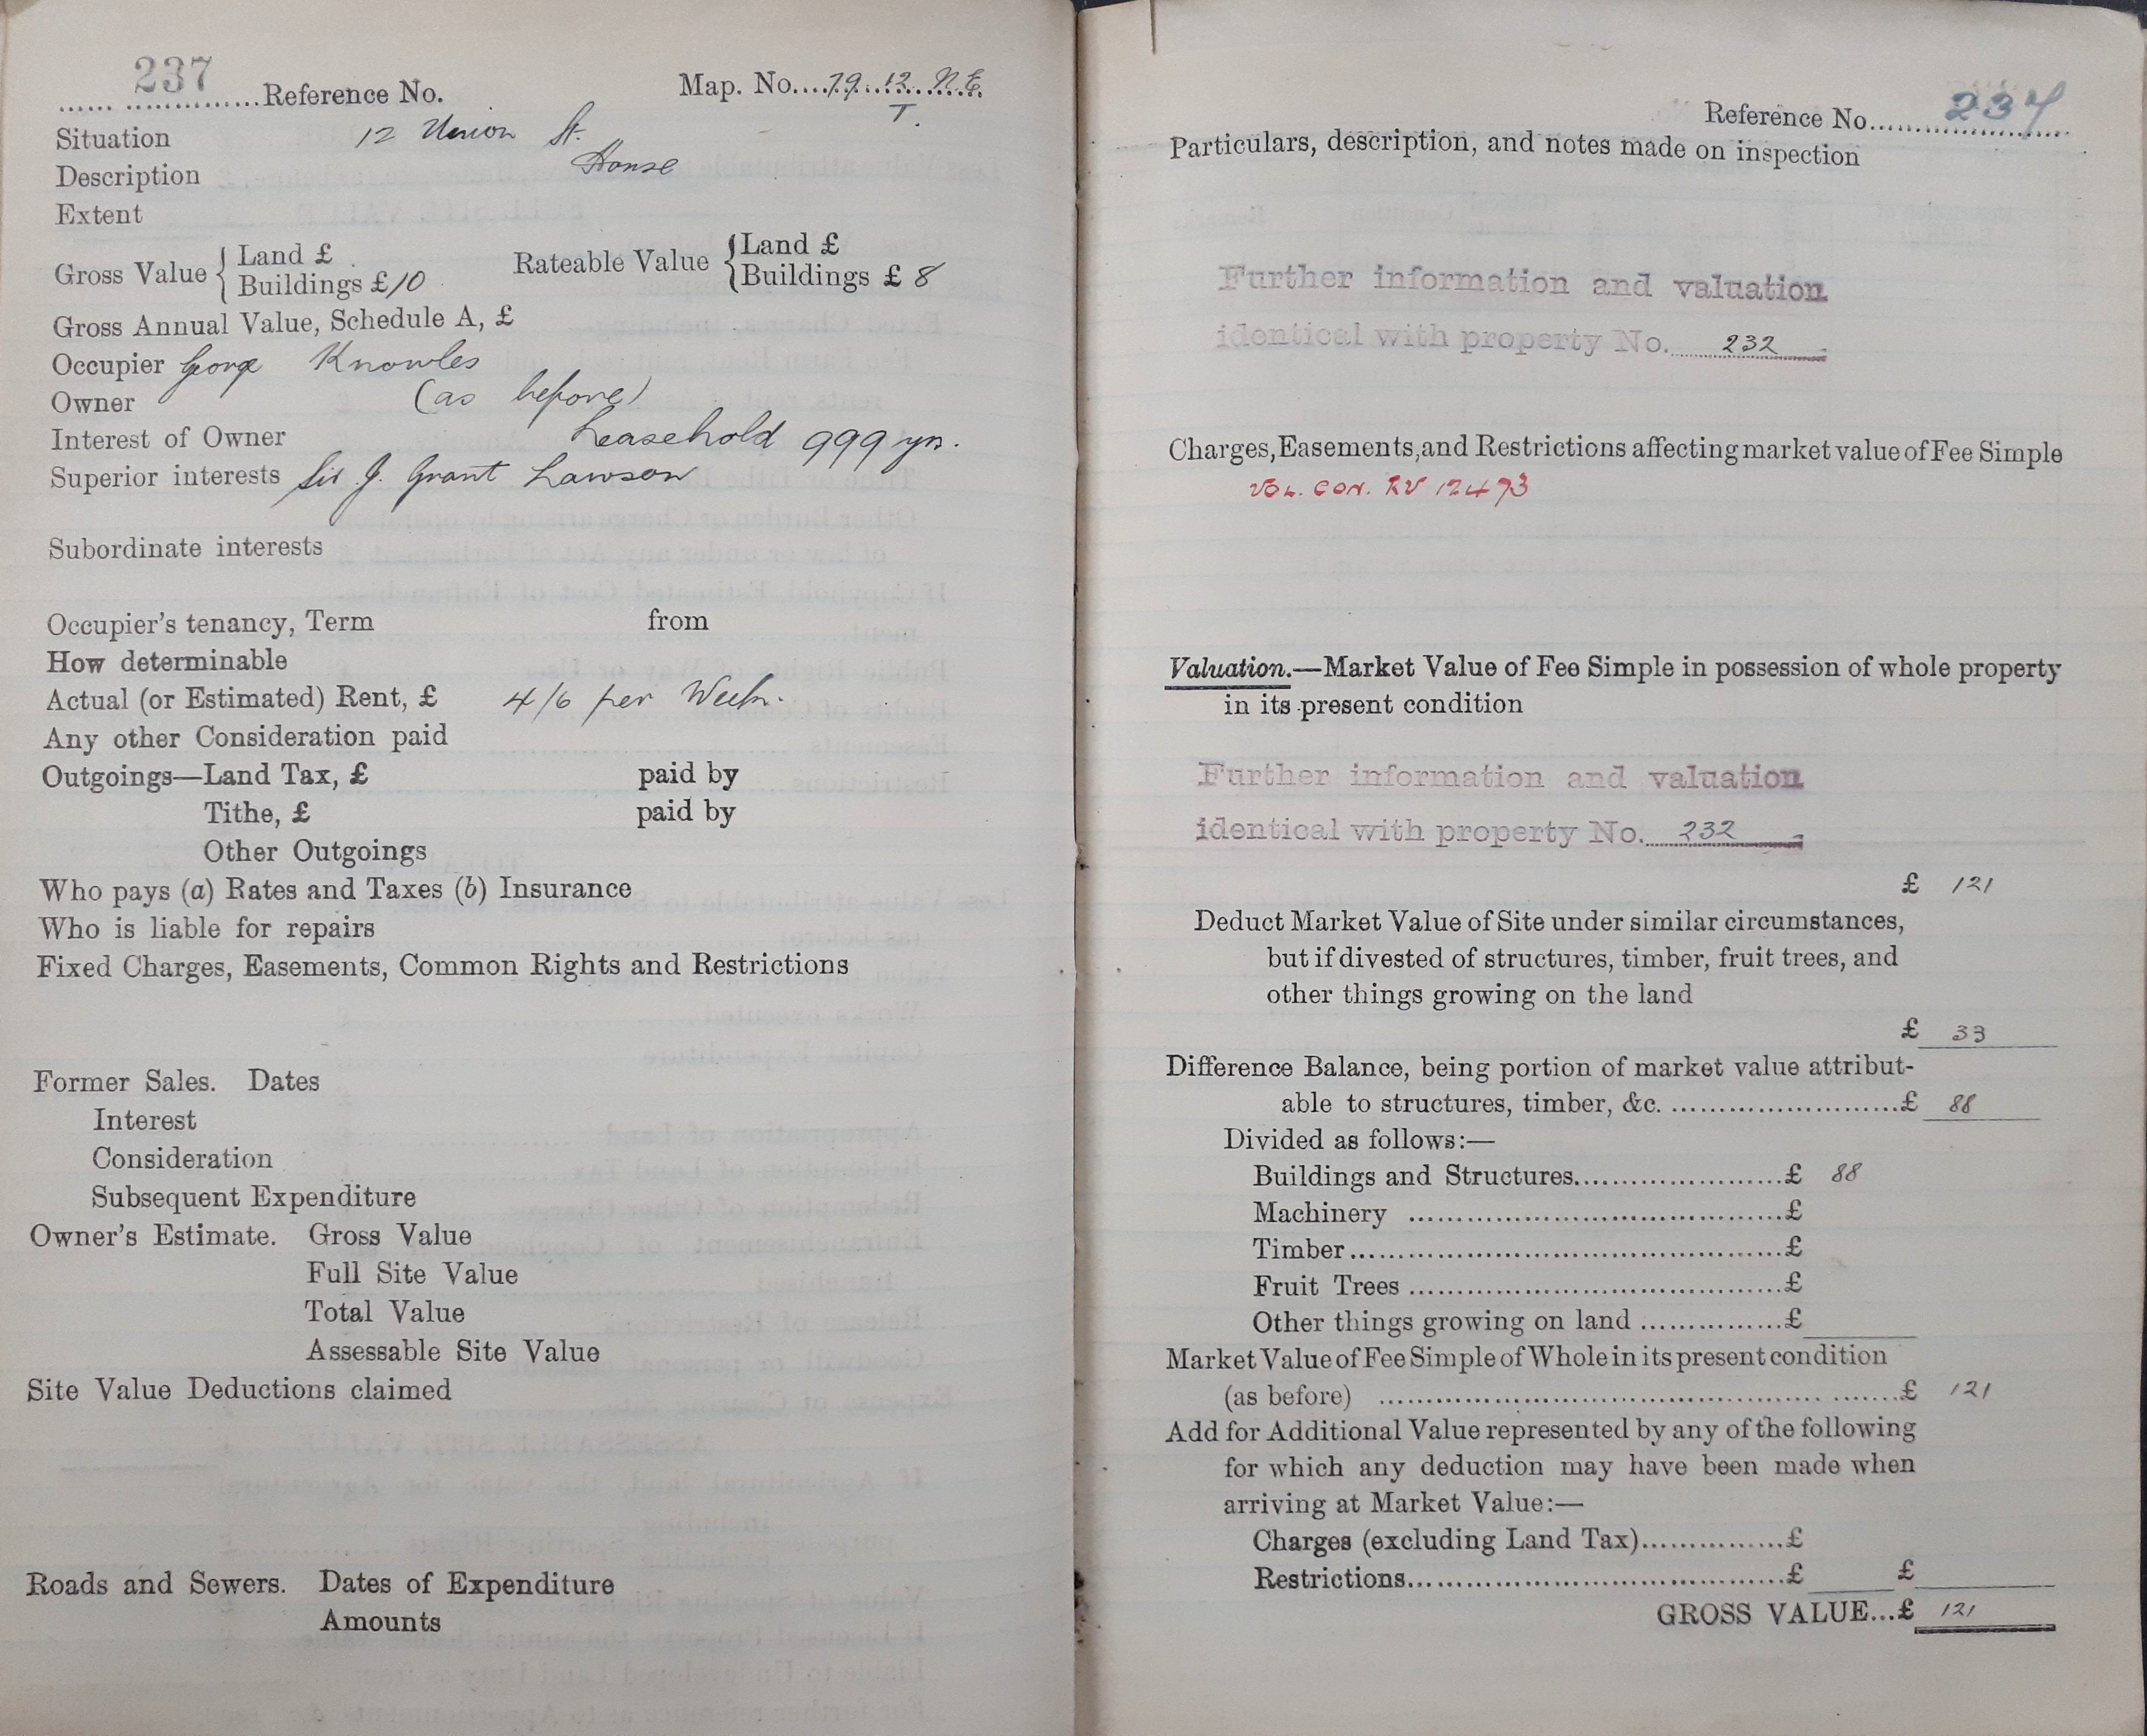 237
...... ..............Reference No. Map. No....79..12..N.E.
T.
Situation 12 Union St.
Description House
Extent
Gross Value { Land £ Rateable Value { Land £
Buildings £10 Buildings £ 8
Gross Annual Value, Schedule A, £
Occupier George Knowles
Owner (as before)
Interest of Owner Leasehold 999 yrs.
Superior interests Sir J. Grant Lawson
Subordinate interests
Occupier's tenancy, Term from
How determinable
Actual (or Estimated) Rent, £ 4/6 per Week.
Any other Consideration paid
Outgoings—Land Tax, £ paid by
Tithe, £ paid by
Other Outgoings
Who pays (a) Rates and Taxes (b) Insurance
Who is liable for repairs
Fixed Charges, Easements, Common Rights and Restrictions
Former Sales. Dates
Interest
Consideration
Subsequent Expenditure
Owner's Estimate. Gross Value
Full Site Value
Total Value
Assessable Site Value
Site Value Deductions claimed
Roads and Sewers. Dates of Expenditure
Amounts
Reference No. 237
Particulars, description, and notes made on inspection
Further information and valuation
identical with property No. 232
Charges, Easements, and Restrictions affecting market value of Fee Simple
VOL. CON. RV 12493
Valuation.—Market Value of Fee Simple in possession of whole property
in its present condition
Further information and valuation
identical with property No. 232
£ 121
Deduct Market Value of Site under similar circumstances,
but if divested of structures, timber, fruit trees, and
other things growing on the land
£ 33
Difference Balance, being portion of market value attribut-
able to structures, timber, &c. ........................£ 88
Divided as follows:—
Buildings and Structures......................£ 88
Machinery ........................................£
Timber..............................................£
Fruit Trees ........................................£
Other things growing on land ...............£
Market Value of Fee Simple of Whole in its present condition
(as before) ......................................................£ 121
Add for Additional Value represented by any of the following
for which any deduction may have been made when
arriving at Market Value:—
Charges (excluding Land Tax)...............£
Restrictions........................................£ £
GROSS VALUE...£ 121